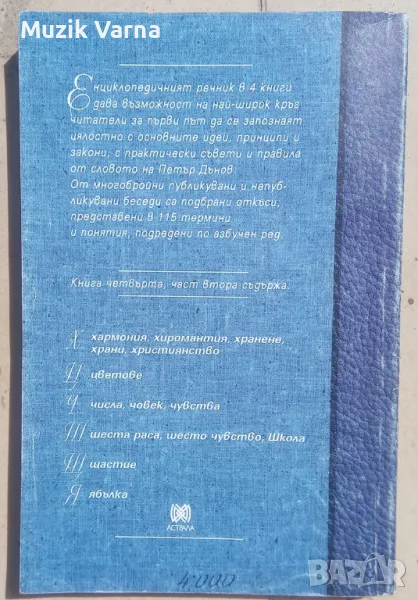 Muzik Varna
Енциклопедичният речник в 4 книги
дава възможност на най-широк кръг
читатели за първи път да се запознаят
цялостно с основните идеи, принципи и
закони, с практически съвети и правила
от словото на Петър Дънов.
От многобройни публикувани и непуб-
ликувани беседи са подбрани откъси,
представени в 115 термини
и понятия, подредени по азбучен ред.
Книга четвърта, част втора съдържа:
Х хармония, хиромантия, хранене,
храни, християнство
Ц цветове
Ч числа, човек, чувства
Ш шеста раса, шесто чувство, Школа
Щ щастие
Я ябълка
АСТРАЛА
4.000
BAZAR
bazar.bg